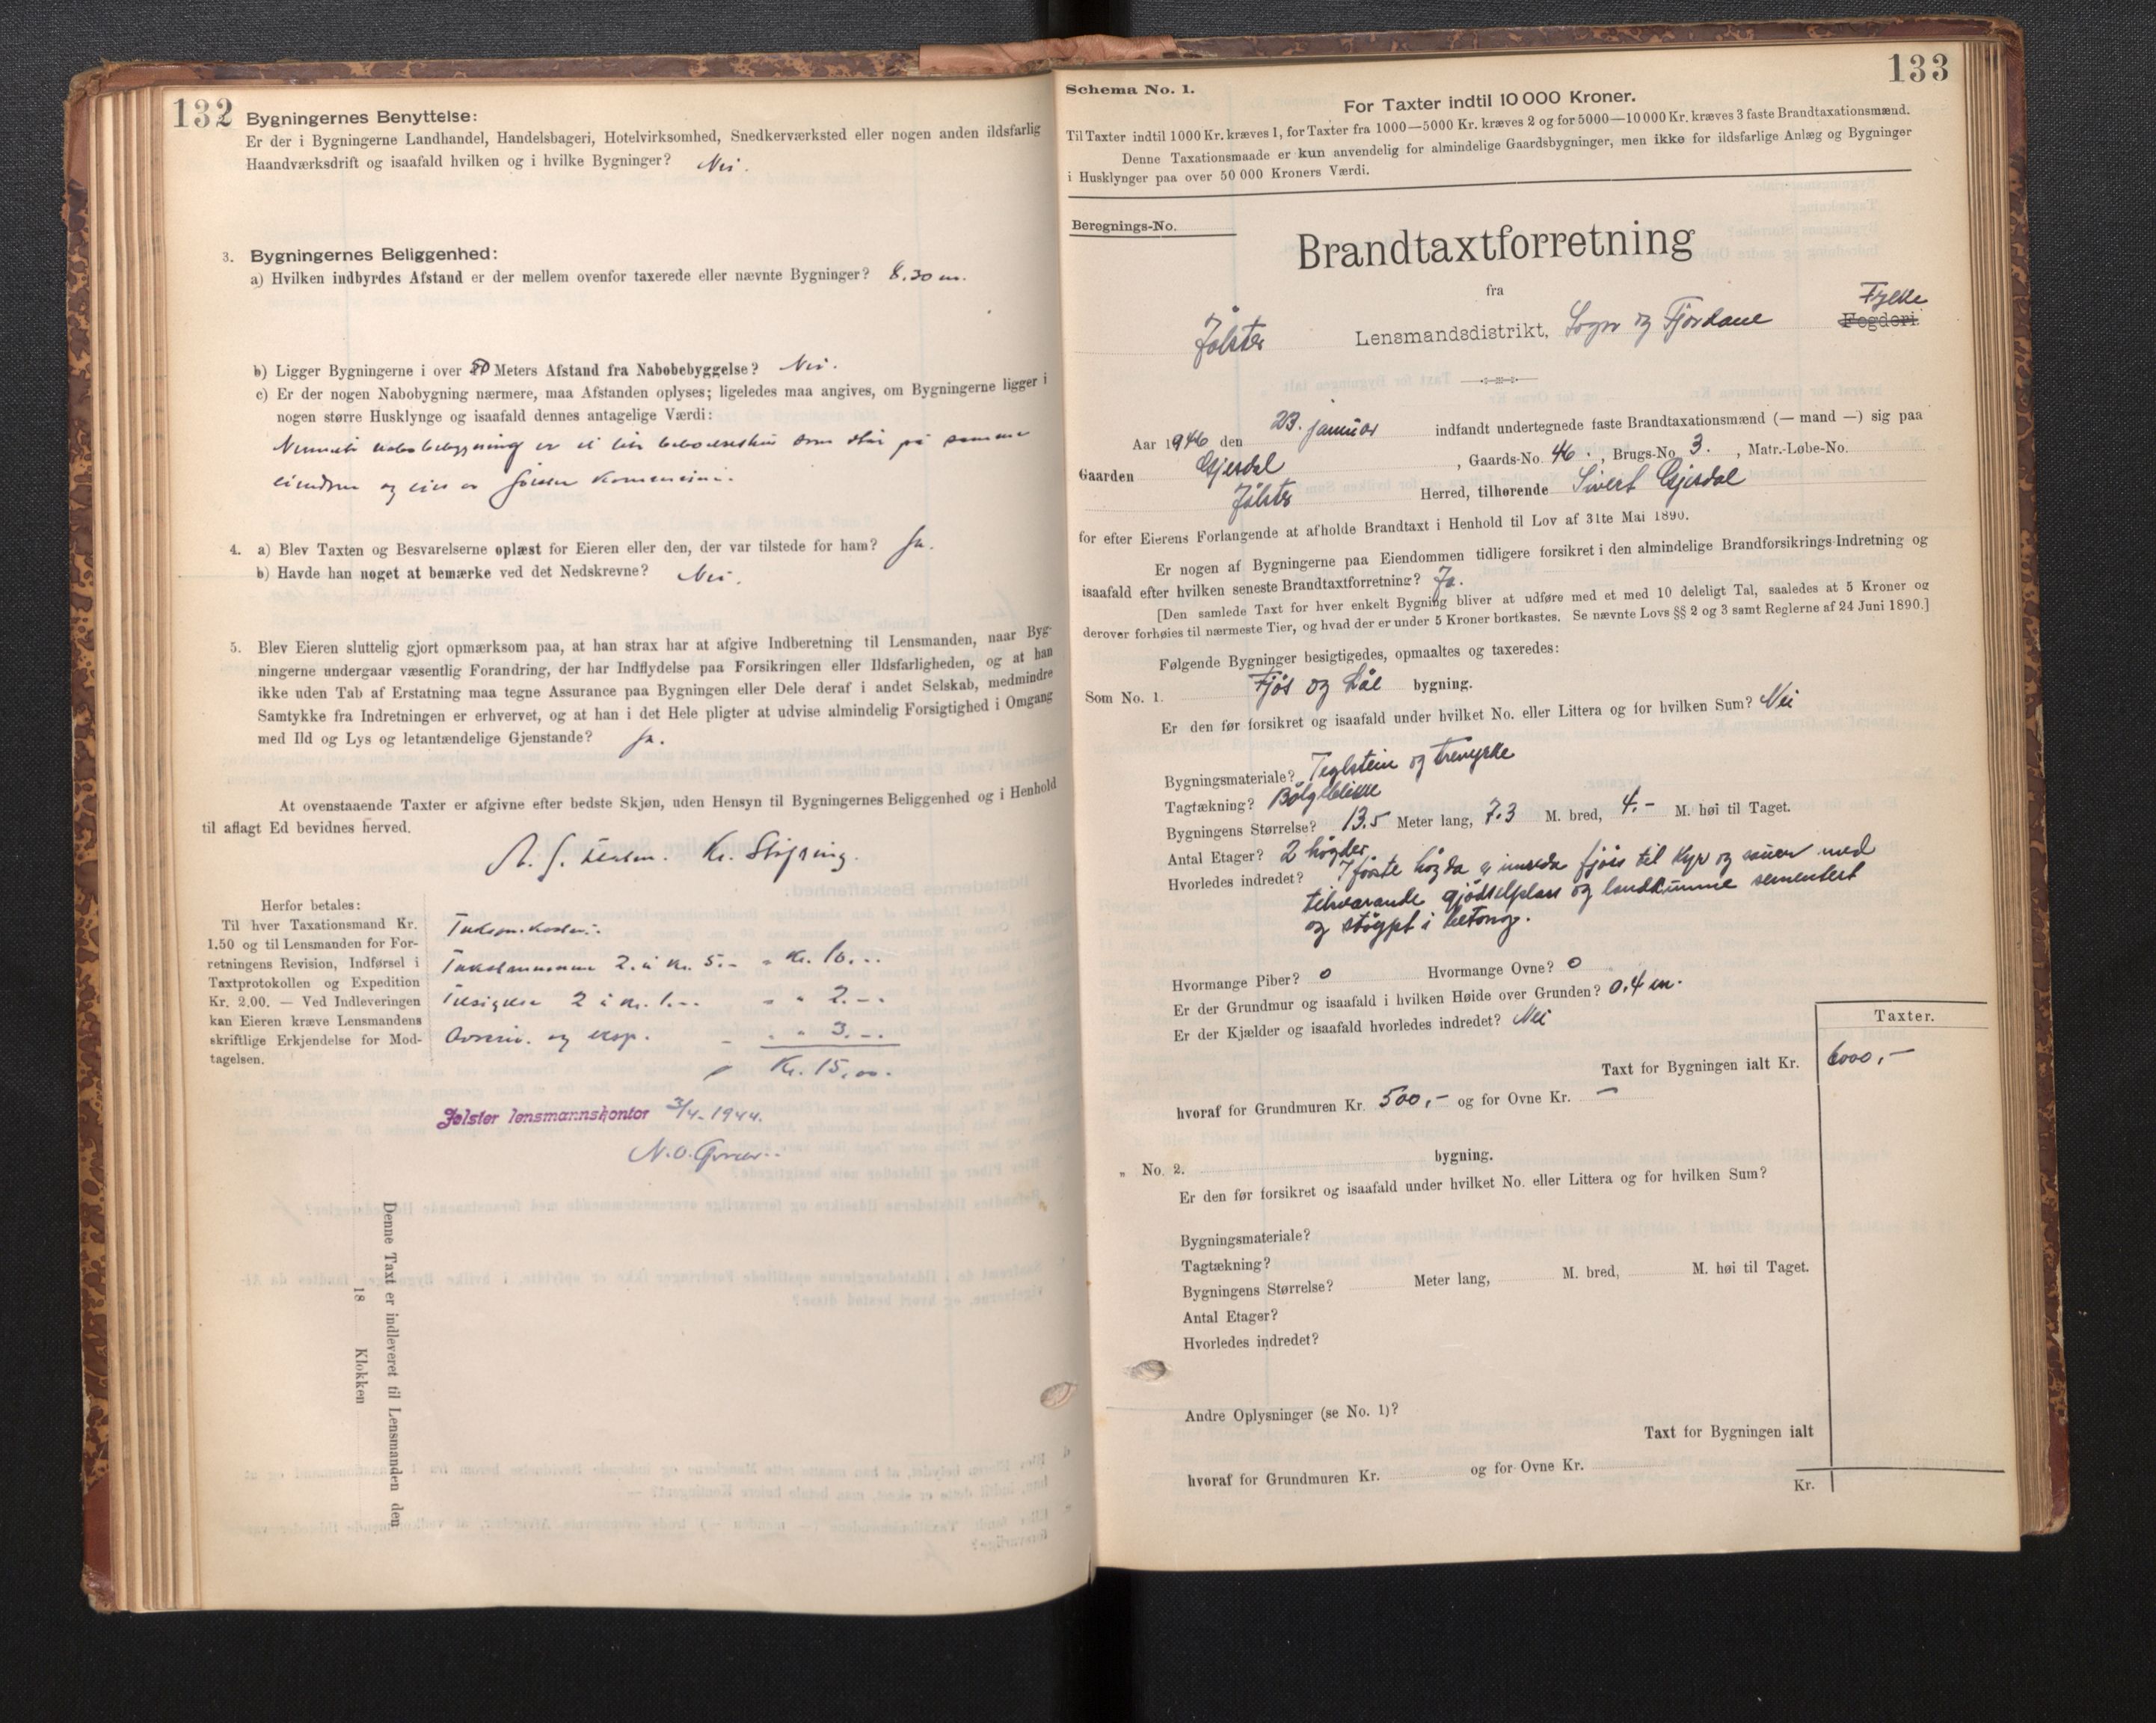 132
Bygningernes Benyttelse:
Er der i Bygningerne Landhandel, Handelsbageri, Hotelvirksomhed, Snedkerværksted eller nogen anden ildsfarlig
Haandværksdrift og isaafald hvilken og i hvilke Bygninger? Nei.
3. Bygningernes Beliggenhed:
a) Hvilken indbyrdes Afstand er der mellem ovenfor taxerede eller nævnte Bygninger? 8.30 m.
b) Ligger Bygningerne i over 50 Meters Afstand fra Nabobebyggelse? Nei.
c) Er der nogen Nabobygning nærmere, maa Afstanden oplyses; ligeledes maa angives, om Bygningerne ligger i
nogen større Husklynge og isaafald dennes antagelige Værdi:
er som står på samme
og
4. a) Blev Taxten og Besvarelserne oplæst for Eieren eller den, der var tilstede for ham? Ja.
b) Havde han noget at bemærke ved det Nedskrevne? Nei.
5. Blev Eieren sluttelig gjort opmærksom paa, at han strax har at afgive Indberetning til Lensmanden, naar Byg-
ningerne undergaar væsentlig Forandring, der har Indflydelse paa Forsikringen eller Ildsfarligheden, og at han
ikke uden Tab af Erstatning maa tegne Assurance paa Bygningen eller Dele deraf i andet Selskab, medmindre
Samtykke fra Indretningen er erhvervet, og at han i det Hele pligter at udvise almindelig Forsigtighed i Omgang
med Ild og Lys og letantændelige Gjenstande? Ja.
At ovenstaaende Taxter er afgivne efter bedste Skjøn, uden Hensyn til Bygningernes Beliggenhed og i Henhold
til aflagt Ed bevidnes herved.
Herfor betales:
Til hver Taxationsmand Kr.
1.50 og til Lensmanden for For-
retningens Revision, Indførsel i
Taxtprotokollen og Expedition
Kr. 2.00. — Ved Indleveringen
kan Eieren kræve Lensmandens
skriftlige Erkjendelse for Mod-
tagelsen.
2 à kr. 5.- " Kr. 10.--
2 à kr. 1.-- " " 2.--
og eksp. " " 3.--
Kr. 15,00.
Jølster lensmannskontor 3/4-1944.
Denne Taxt er indleveret til Lensmanden den
18 Klokken
133
Schema No. 1.
For Taxter indtil 10 000 Kroner.
Til Taxter indtil 1000 Kr. kræves 1, for Taxter fra 1000—5000 Kr. kræves 2 og for 5000—10 000 Kr. kræves 3 faste Brandtaxationsmænd.
Denne Taxationsmaade er kun anvendelig for almindelige Gaardsbygninger, men ikke for ildsfarlige Anlæg og Bygninger
i Husklynger paa over 50 000 Kroners Værdi.
Beregnings-No.
Brandtaxtforretning
fra
Jølster Lensmandsdistrikt, Sogn og Fjordane Fylke Fogderi
Aar 1946 den 23. januar indfandt undertegnede faste Brandtaxationsmænd (— mand —) sig paa
Gaarden Gjesdal, Gaards-No. 46., Brugs-No. 3., Matr.-Løbe-No.
Jølster Herred, tilhørende Sivert Gjesdal
for efter Eierens Forlangende at afholde Brandtaxt i Henhold til Lov af 31te Mai 1890.
Er nogen af Bygningerne paa Eiendommen tidligere forsikret i den almindelige Brandforsikrings-Indretning og
isaafald efter hvilken seneste Brandtaxtforretning? Ja.
[Den samlede Taxt for hver enkelt Bygning bliver at udføre med et med 10 deleligt Tal, saaledes at 5 Kroner og
derover forhøies til nærmeste Tier, og hvad der er under 5 Kroner bortkastes. Se nævnte Lovs §§ 2 og 3 samt Reglerne af 24 Juni 1890.]
Følgende Bygninger besigtigedes, opmaaltes og taxeredes:
Som No. 1. Fjøs og Låe bygning.
Er den før forsikret og isaafald under hvilket No. eller Littera og for hvilken Sum? Nei
Bygningsmateriale? Teglstein og trevyrke
Tagtækning? Bølgeblikk
Bygningens Størrelse? 13.5 Meter lang, 7.3 M. bred, 4.- M. høi til Taget.
Antal Etager? 2 høgder
Hvorledes indredet? I første høgda er innreda fjøs til kyr og sauer med
tilsvarande gjødselplass og landkumme sementert
og støypt i betong.
Hvormange Piber? 0 Hvormange Ovne? 0
Er der Grundmur og isaafald i hvilken Høide over Grunden? 0.4 m.
Er der Kjælder og isaafald hvorledes indredet? Nei
Taxter.
Taxt for Bygningen ialt Kr. 6000,-
hvoraf for Grundmuren Kr. 500,- og for Ovne Kr. —
" No. 2. bygning.
Er den før forsikret og isaafald under hvilket No. eller Littera og for hvilken Sum?
Bygningsmateriale?
Tagtækning?
Bygningens Størrelse? Meter lang, M. bred, M. høi til Taget.
Antal Etager?
Hvorledes indredet?
Andre Oplysninger (se No. 1)?
Taxt for Bygningen ialt
hvoraf for Grundmuren Kr. og for Ovne Kr.
Kr.